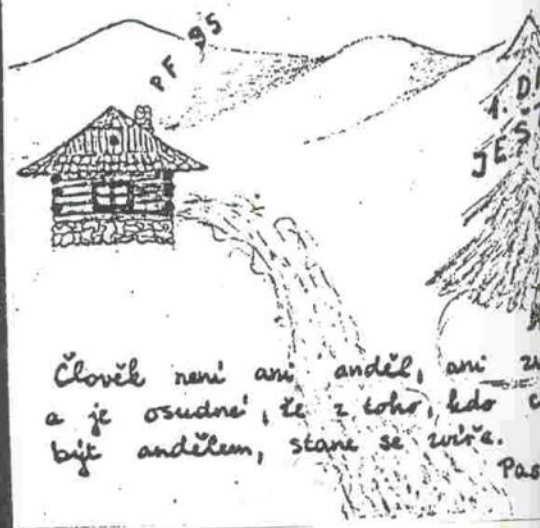 PF 95
1. D
JEŠ
Člověk není ani anděl, ani
a je osudné, že z toho, kdo c
být andělem, stane se zvíře.
Pas